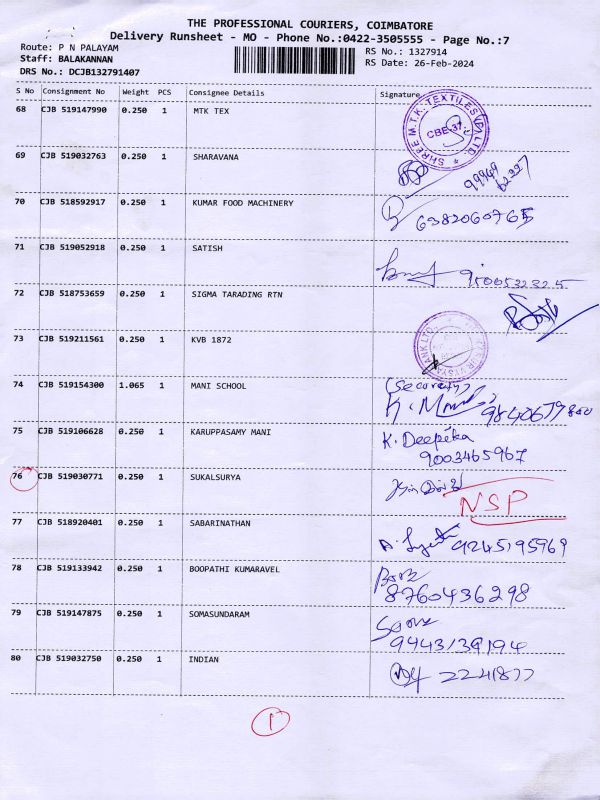 THE PROFESSIONAL COURIERS, COIMBATORE
Delivery Runsheet - MO - Phone No.:0422-3505555 - Page No.:7
Route: P N PALAYAM
RS No.: 1327914
Staff: BALAKANNAN
RS Date: 26-Feb-2024
DRS No.: DCJB132791407
S No Consignment No Weight PCS Consignee Details Signature
68 CJB 519147990 0.250 1 MTK TEX
SHREE M.T.K. TEXTILES (P) LTD. CBE-37
69 CJB 519032763 0.250 1 SHARAVANA
70 CJB 518592917 0.250 1 KUMAR FOOD MACHINERY
6382060765
71 CJB 519052918 0.250 1 SATISH
9500532325
72 CJB 518753659 0.250 1 SIGMA TARADING RTN
73 CJB 519211561 0.250 1 KVB 1872
74 CJB 519154300 1.065 1 MANI SCHOOL
(Security)
75 CJB 519106628 0.250 1 KARUPPASAMY MANI
K. Deepika
9003465967
76 CJB 519030771 0.250 1 SUKALSURYA
NSP
77 CJB 518920401 0.250 1 SABARINATHAN
9245195969
78 CJB 519133942 0.250 1 BOOPATHI KUMARAVEL
8760436298
79 CJB 519147875 0.250 1 SOMASUNDARAM
9443139194
80 CJB 519032750 0.250 1 INDIAN
2241877
1